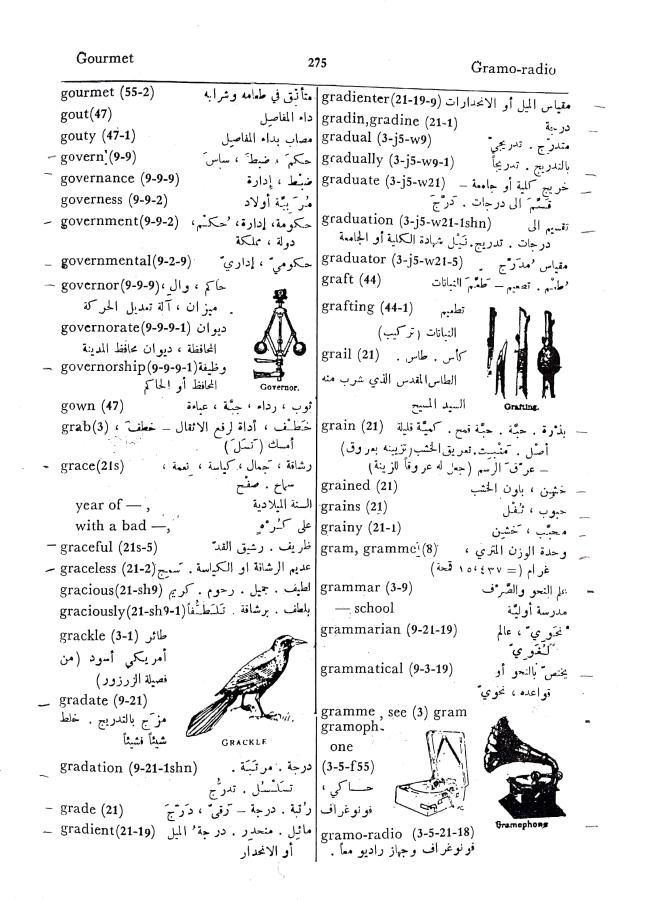 Gourmet
275
Gramo-radio
gourmet (55-2) متأنّق في طعامه وشرابه
gout(47) داء المفاصيل
gouty (47-1) مصاب بداء المفاصيل
– govern (9-9) حكمَ ، ضبطَ ، ساسَ
governance (9-9-9) ضبْط ، إدارة
governess (9-9-2) مُرَبِّيَّة أولاد
– government(9-9-2) حكومة، إدارة، حُكْم،
دولة ، مملكة
– governmental(9-2-9) حكوميّ ، إداريّ
– governor(9-9-9) حاكم ، وال ،
. ميزان ، آلة تعديل الحركة
governorate(9-9-9-1) ديوان
المحافظة ، ديوان محافظ المدينة
– governorship(9-9-9-1) وظيفة
المحافظ أو الحاكم
Governor.
gown (47) ثوب ، رداء ، جبَّة ، عباءة
grab(3) خَطْف ، أداة لرفع الاثقال – خطفَ ،
أمسك (نَسَلَ)
- grace(21s) رشاقة ، جمال ، كياسة ، نعمة ،
سماح . صفْح
year of — , السنة الميلادية
with a bad —, على كُرْهٍ
– graceful (21s-5) ظريف . رشيق القدّ
– graceless (21-2) عديم الرشاقة او الكياسة . سمِج
gracious(21-sh9) لطيف . جميل . رحوم . كريم
graciously(21-sh9-1) بلطف . برشاقة . تَلَطُّفاً
grackle (3-1) طائر
أمريكي أسود (من
فصيلة الزرزور)
GRACKLE
– gradate (9-21)
مزَج بالتدريج . خلط
شيئاً فشيئاً
gradation (9-21-1shn) درجة . مرتَبَة .
تسَلْسُل . تدرُّج
– grade (21) رُتبة . درجة – رَقَّى ، دَرَّجَ
– gradient(21-19) مائل . منحدر . درجة الميل
أو الانحدار
gradienter(21-19-9) مقياس الميل أو الانحدارات
gradin,gradine (21-1) درجة
gradual (3-j5-w9) متدرّج . تدريجيّ
gradually (3-j5-w9-1) بالتدريج . تدريجاً
graduate (3-j5-w21) خريج كلية أو جامعة –
قسَّم الى درجات . دَرَّجَ
graduation (3-j5-w21-1shn) تقسيم الى
درجات . تدريج. نَيْل شهادة الكلية أو الجامعة
graduator (3-j5-w21-5) مقياس مُدَرّج
graft (44) طُعْم . تطعيم – طعَّم النباتات
grafting (44-1) تطعيم
النباتات (تركيب)
grail (21) كأس . طاس .
الطاس المقدس الذي شرب منه
السيد المسيح
Grafting.
grain (21) بذرة . حبَّة . حبَّة قمح . كميَّة قليلة
أصْل . مَنْبِت. تعريق الخشب (تزيينه بعروق)
– عرَّق الرسم (جعل له عروقاً للزينة)
grained (21) خشِن ، بلون الخشب
grains (21) حبوب ، ثُفْل
grainy (21-1) محبَّب ، خَشِن
gram, gramme (8) وحدة الوزن المتري ،
غرام (= ١٥،٤٣٧ قمحة)
grammar (3-9) علم النحو والصَّرْف
— school مدرسة أوليَّة
grammarian (9-21-19) نَحَوِيّ ، عالِم
لُغَوِيّ
grammatical (9-3-19) يختصّ بالنحو أو
قواعده ، نحويّ
gramme , see (3) gram
gramoph-
one
(3-5-f55)
حاكي ،
فونوغراف
Gramephone
gramo-radio (3-5-21-18)
فونوغراف وجهاز راديو معاً .